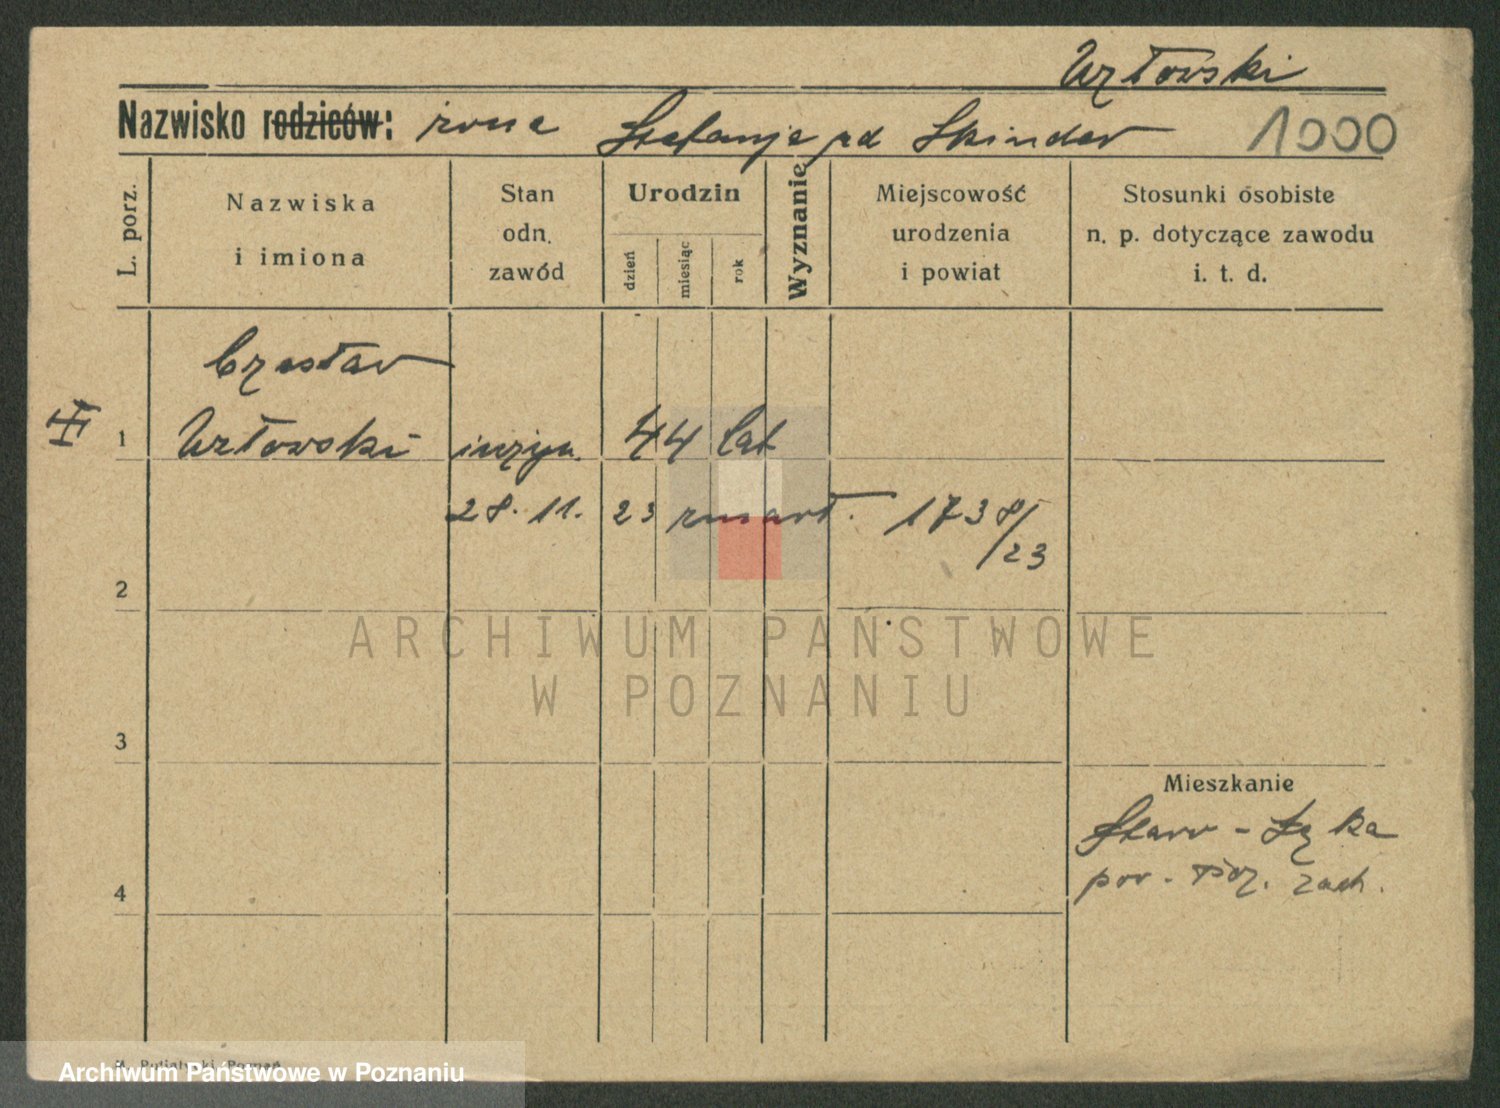 Urłowski
Nazwisko rodziców: żona Stefanja zd Skinder 1000
L. porz.
Nazwiska
i imiona
Stan
odn.
zawód
Urodzin
dzień
miesiąc
rok
Wyznanie
Miejscowość
urodzenia
i powiat
Stosunki osobiste
n. p. dotyczące zawodu
i. t. d.
Czesław
1 Urłowski inżyn. 44 lat
28. 11. 23 zmarł. 1738/23
2
3
Mieszkanie
Staro-Łęka
pow. Poz. zach.
4
ARCHIWUM PAŃSTWOWE
W POZNANIU
Archiwum Państwowe w Poznaniu